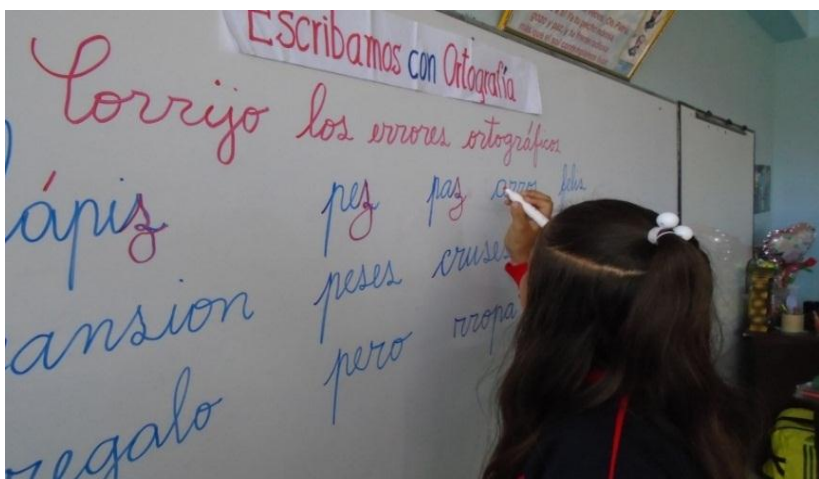 Escribamos con Ortografía
Corrijo los errores ortográficos
lápiz pez paz arros felis
ansion peses cruses
regalo pero rropa